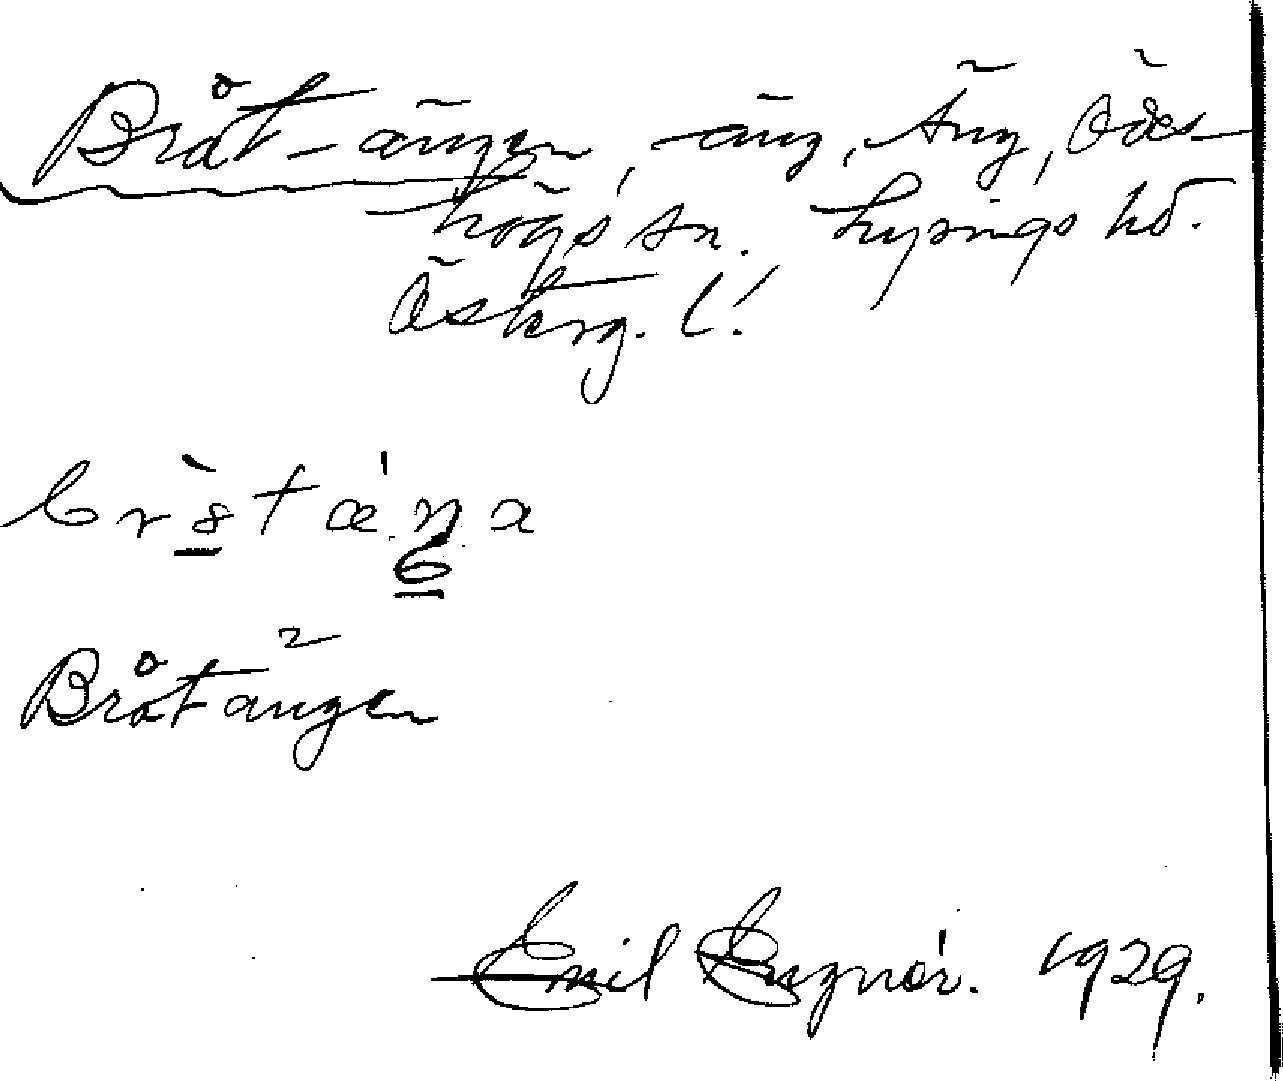 Bråt-ängen, äng, Äng, Ödes-
högs sn. Lysings hd.
Östерg. l.
Bråtängen
Emil Engnér. 1929.